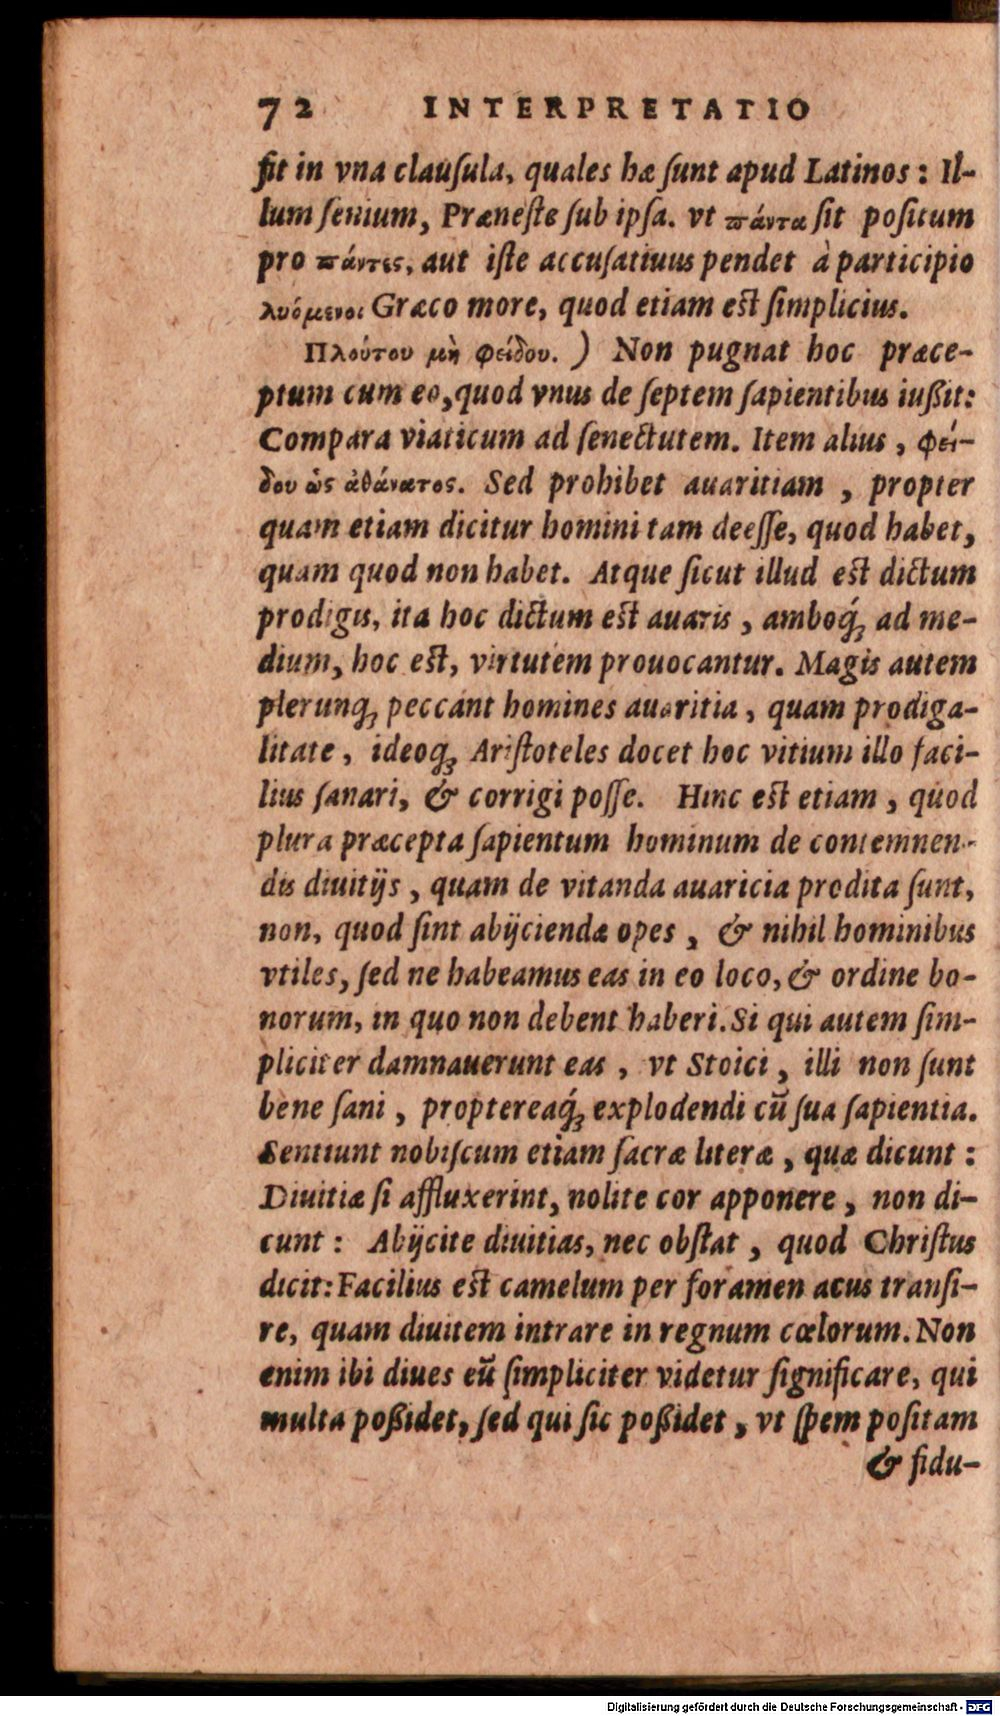 72 INTERPRETATIO
ſit in vna clauſula, quales hæ ſunt apud Latinos: Il-
lum ſenium, Præneſte ſub ipſa. vt πάντα ſit poſitum
pro πάντες, aut iſte accuſatiuus pendet à participio
λυόμενοι Græco more, quod etiam eſt ſimplicius.
Πλούτου μὴ φείδου.) Non pugnat hoc præce-
ptum cum eo, quod vnus de ſeptem ſapientibus iußit:
Compara viaticum ad ſenectutem. Item alius, φεί-
δου ὡς ἀθάνατος. Sed prohibet auaritiam, propter
quam etiam dicitur homini tam deeſſe, quod habet,
quam quod non habet. Atque ſicut illud eſt dictum
prodigis, ita hoc dictum eſt auaris, amboq́ꝫ ad me-
dium, hoc eſt, virtutem prouocantur. Magis autem
plerunqꝫ peccant homines auaritia, quam prodiga-
litate, ideoqꝫ Ariſtoteles docet hoc vitium illo faci-
lius ſanari, & corrigi poſſe. Hinc eſt etiam, quod
plura præcepta ſapientum hominum de contemnen-
dis diuitijs, quam de vitanda auaricia prodita ſunt,
non, quod ſint abijciendæ opes, & nihil hominibus
vtiles, ſed ne habeamus eas in eo loco, & ordine bo-
norum, in quo non debent haberi. Si qui autem ſim-
pliciter damnauerunt eas, vt Stoici, illi non ſunt
bene ſani, proptereaq́ꝫ explodendi cū ſua ſapientia.
Sentiunt nobiſcum etiam ſacræ literæ, quæ dicunt:
Diuitiæ ſi affluxerint, nolite cor apponere, non di-
cunt: Abijcite diuitias, nec obſtat, quod Chriſtus
dicit: Facilius eſt camelum per foramen acus tranſi-
re, quam diuitem intrare in regnum cœlorum. Non
enim ibi diues eū ſimpliciter videtur ſignificare, qui
multa poßidet, ſed qui ſic poßidet, vt ſpem poſitam
& fidu-
Digitalisierung gefördert durch die Deutsche Forschungsgemeinschaft - DFG